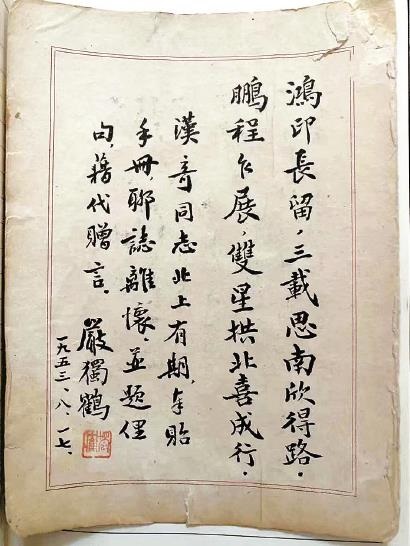 鴻印長留，三載思南欣得路。
鵬程乍展，雙星拱北喜成行。
漢奇同志北上有期，奉貽
手冊，聊誌離懷，並題俚
句，藉代贈言。
嚴獨鶴
一九五三、八、一七、